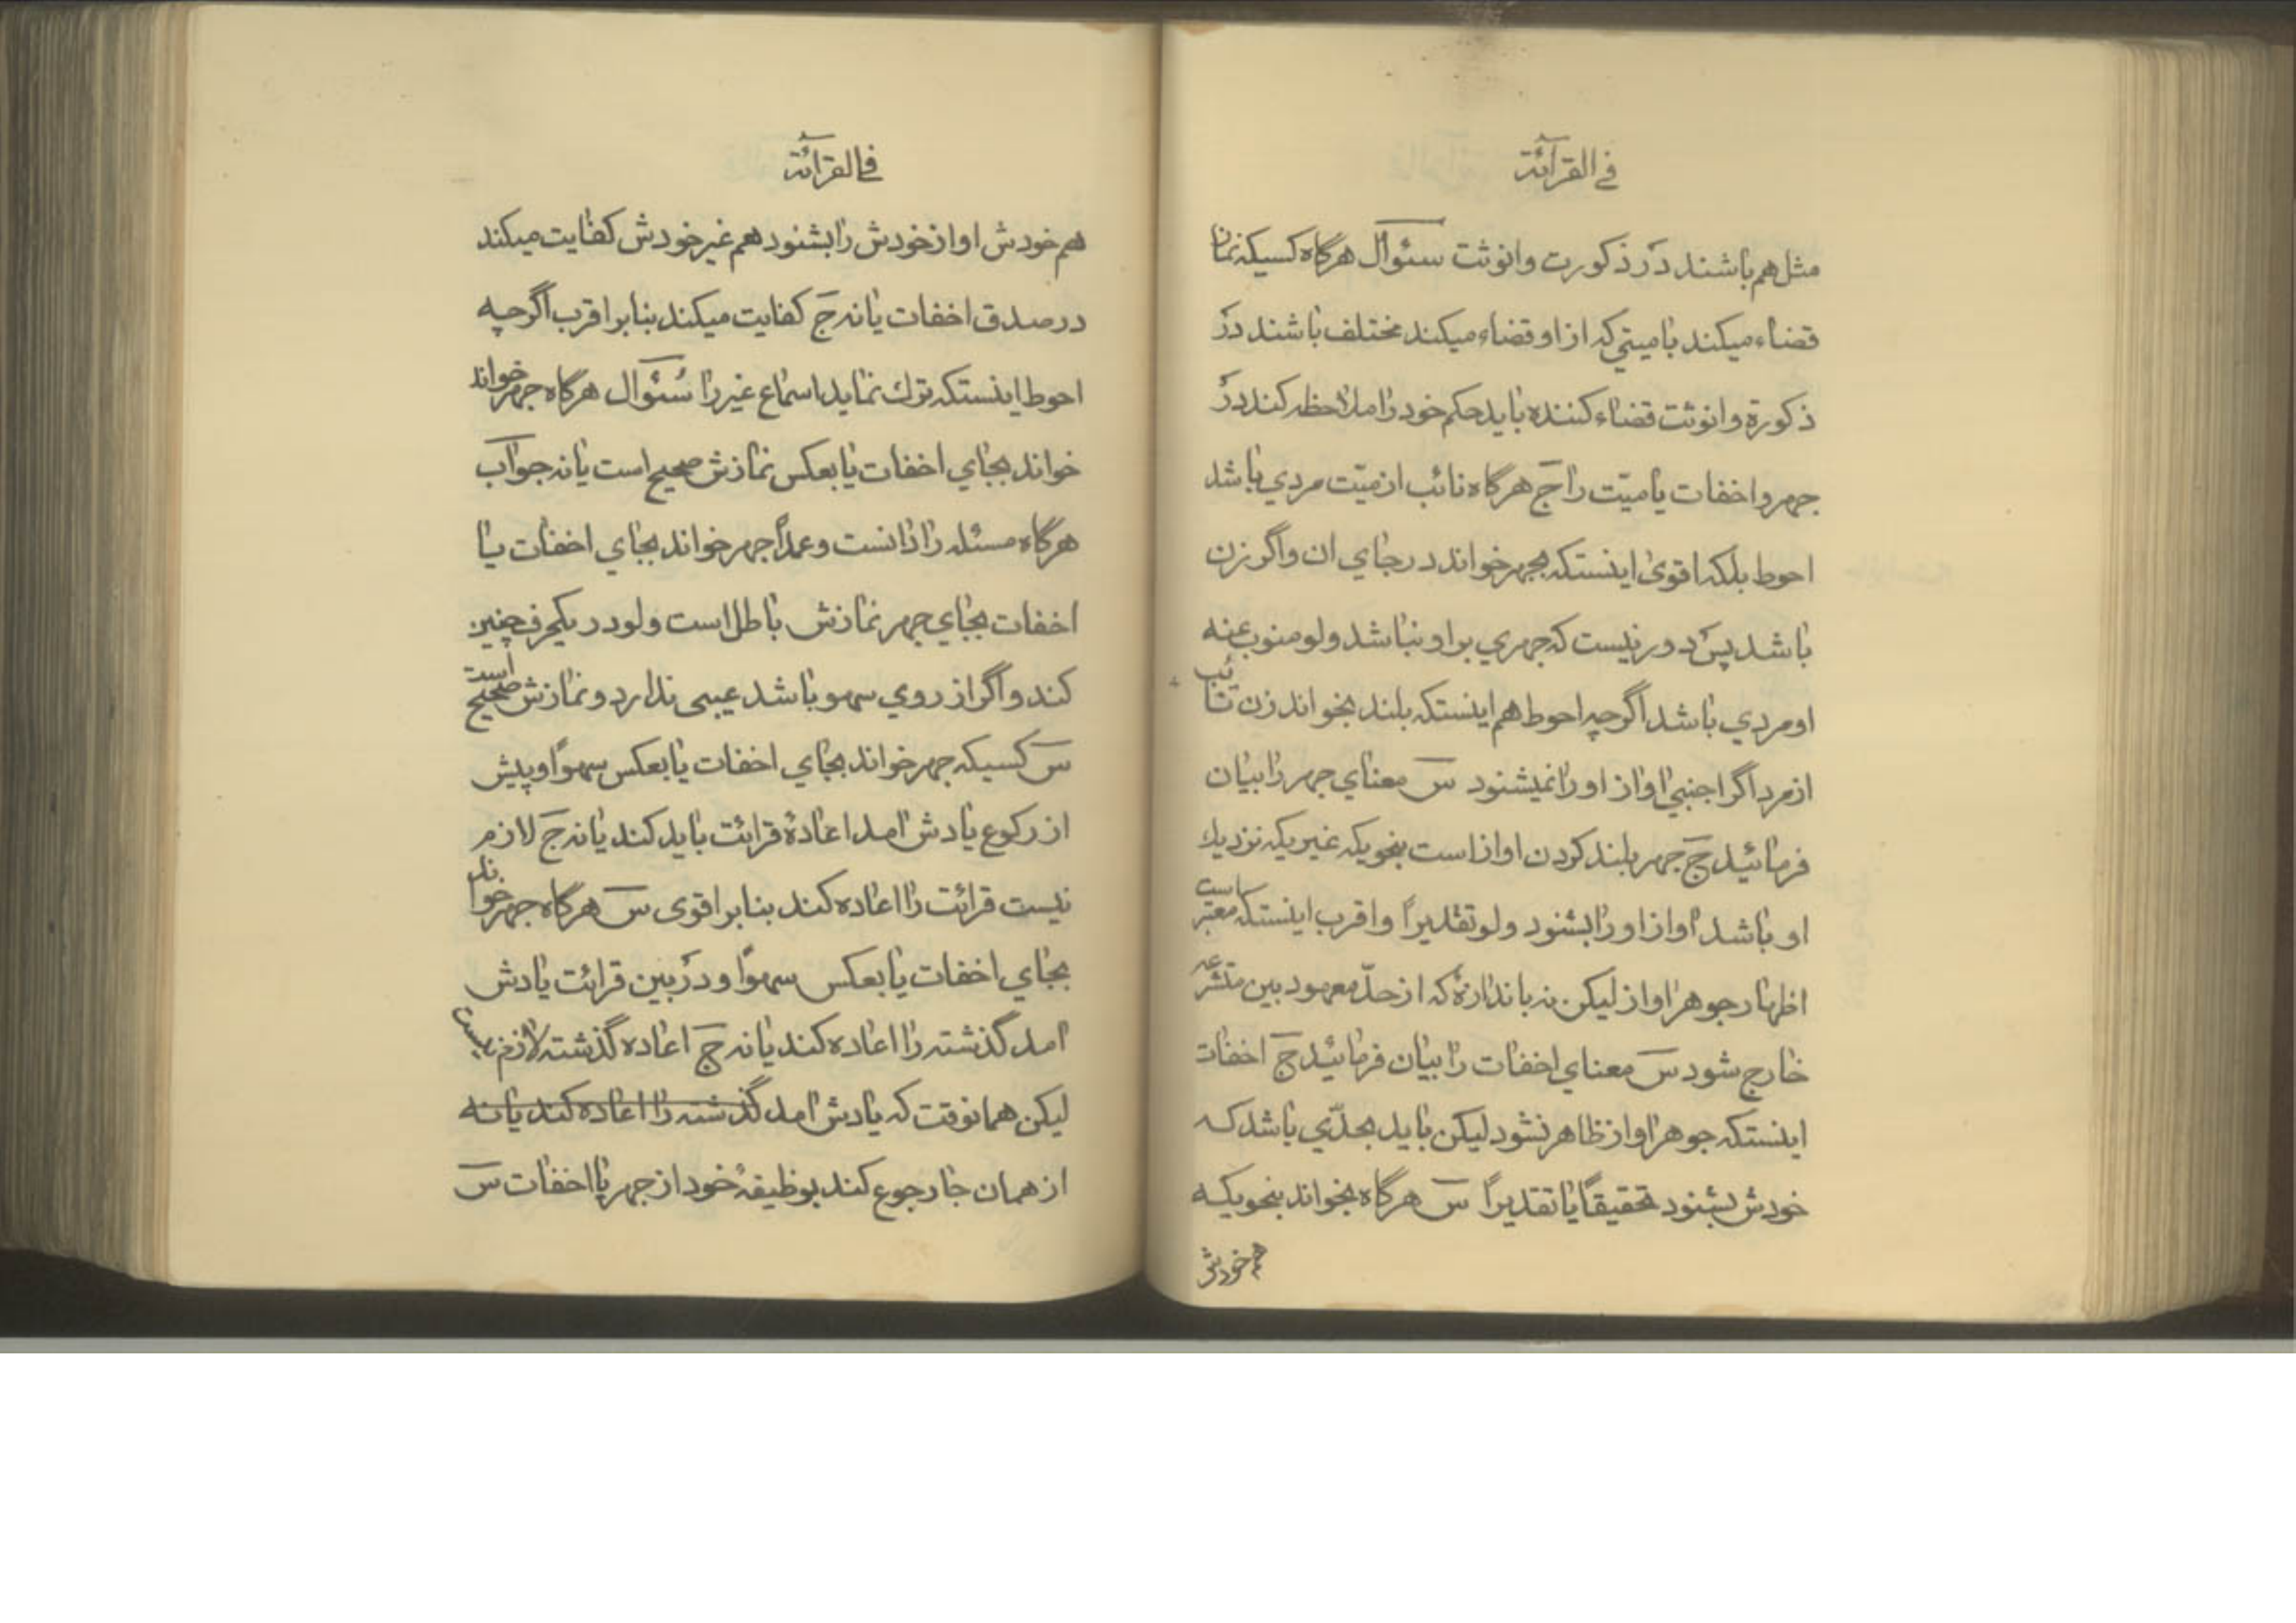 في القرآئة
مثل هم باشند در ذكورت وانوثت سئوال هرگاه كسيكه نماز
قضاء ميكند با ميتي كه از او قضاء ميكند مختلف باشند در
ذكورة وانوثت قضاء كننده بايد حكم خود را ملاحظه كند در
جهر واخفات يا ميّت را ج هرگاه نائب از ميّت مردي باشد
احوط بلكه اقوى اينستكه بجهر خواند در جاي ان واگر زن
باشد پس دور نيست كه جهري بر او نباشد ولو منوب عنه
او مردي باشد اگرچه احوط هم اينستكه بلند بخواند زن نائب
از مرد اگر اجنبي اواز او را نميشنود س معناي جهر را بيان
فرمائيد ج جهر بلند كردن اواز است بنحويكه غير يكه نزديك
او باشد اواز او را بشنود ولو تقديراً واقرب اينستكه معتبر است
اظهار جوهر اواز ليكن نه باندازۀ كه از حدّ معهود بين متشرعه
خارج شود س معناي اخفات را بيان فرمائيد ج اخفات
اينستكه جوهر اواز ظاهر نشود ليكن بايد بحدّي باشد كه
خودش بشنود تحقيقاً يا تقديراً س هرگاه بخواند بنحويكه
هم خودش
في القرآئة
هم خودش اواز خودش را بشنود هم غير خودش كفايت ميكند
در صدق اخفات يا نه ج كفايت ميكند بنا بر اقرب اگرچه
احوط اينستكه ترك نمايد اسماع غير را سئوال هرگاه جهر خواند
خواند بجاي اخفات يا بعكس نمازش صحيح است يا نه جواب
هرگاه مسئله را دانست وعمداً جهر خواند بجاي اخفات يا
اخفات بجاي جهر نمازش باطل است ولو در يكحرف چنين
كند واگر از روي سهو باشد عيبى ندارد ونمازش صحيح است
س كسيكه جهر خواند بجاي اخفات يا بعكس سهواً وپيش
از ركوع يادش امد اعادۀ قرائت بايد كند يا نه ج لازم
نيست قرائت را اعاده كند بنا بر اقوى س هرگاه جهر خواند
بجاي اخفات يا بعكس سهواً ودر بين قرائت يادش
امد گذشته را اعاده كند يا نه ج اعاده گذشته لازم نيست
ليكن همانوقت كه يادش امد گذشته را اعاده كند يا نه
از همان جا رجوع كند بوظيفۀ خود از جهر يا اخفات س